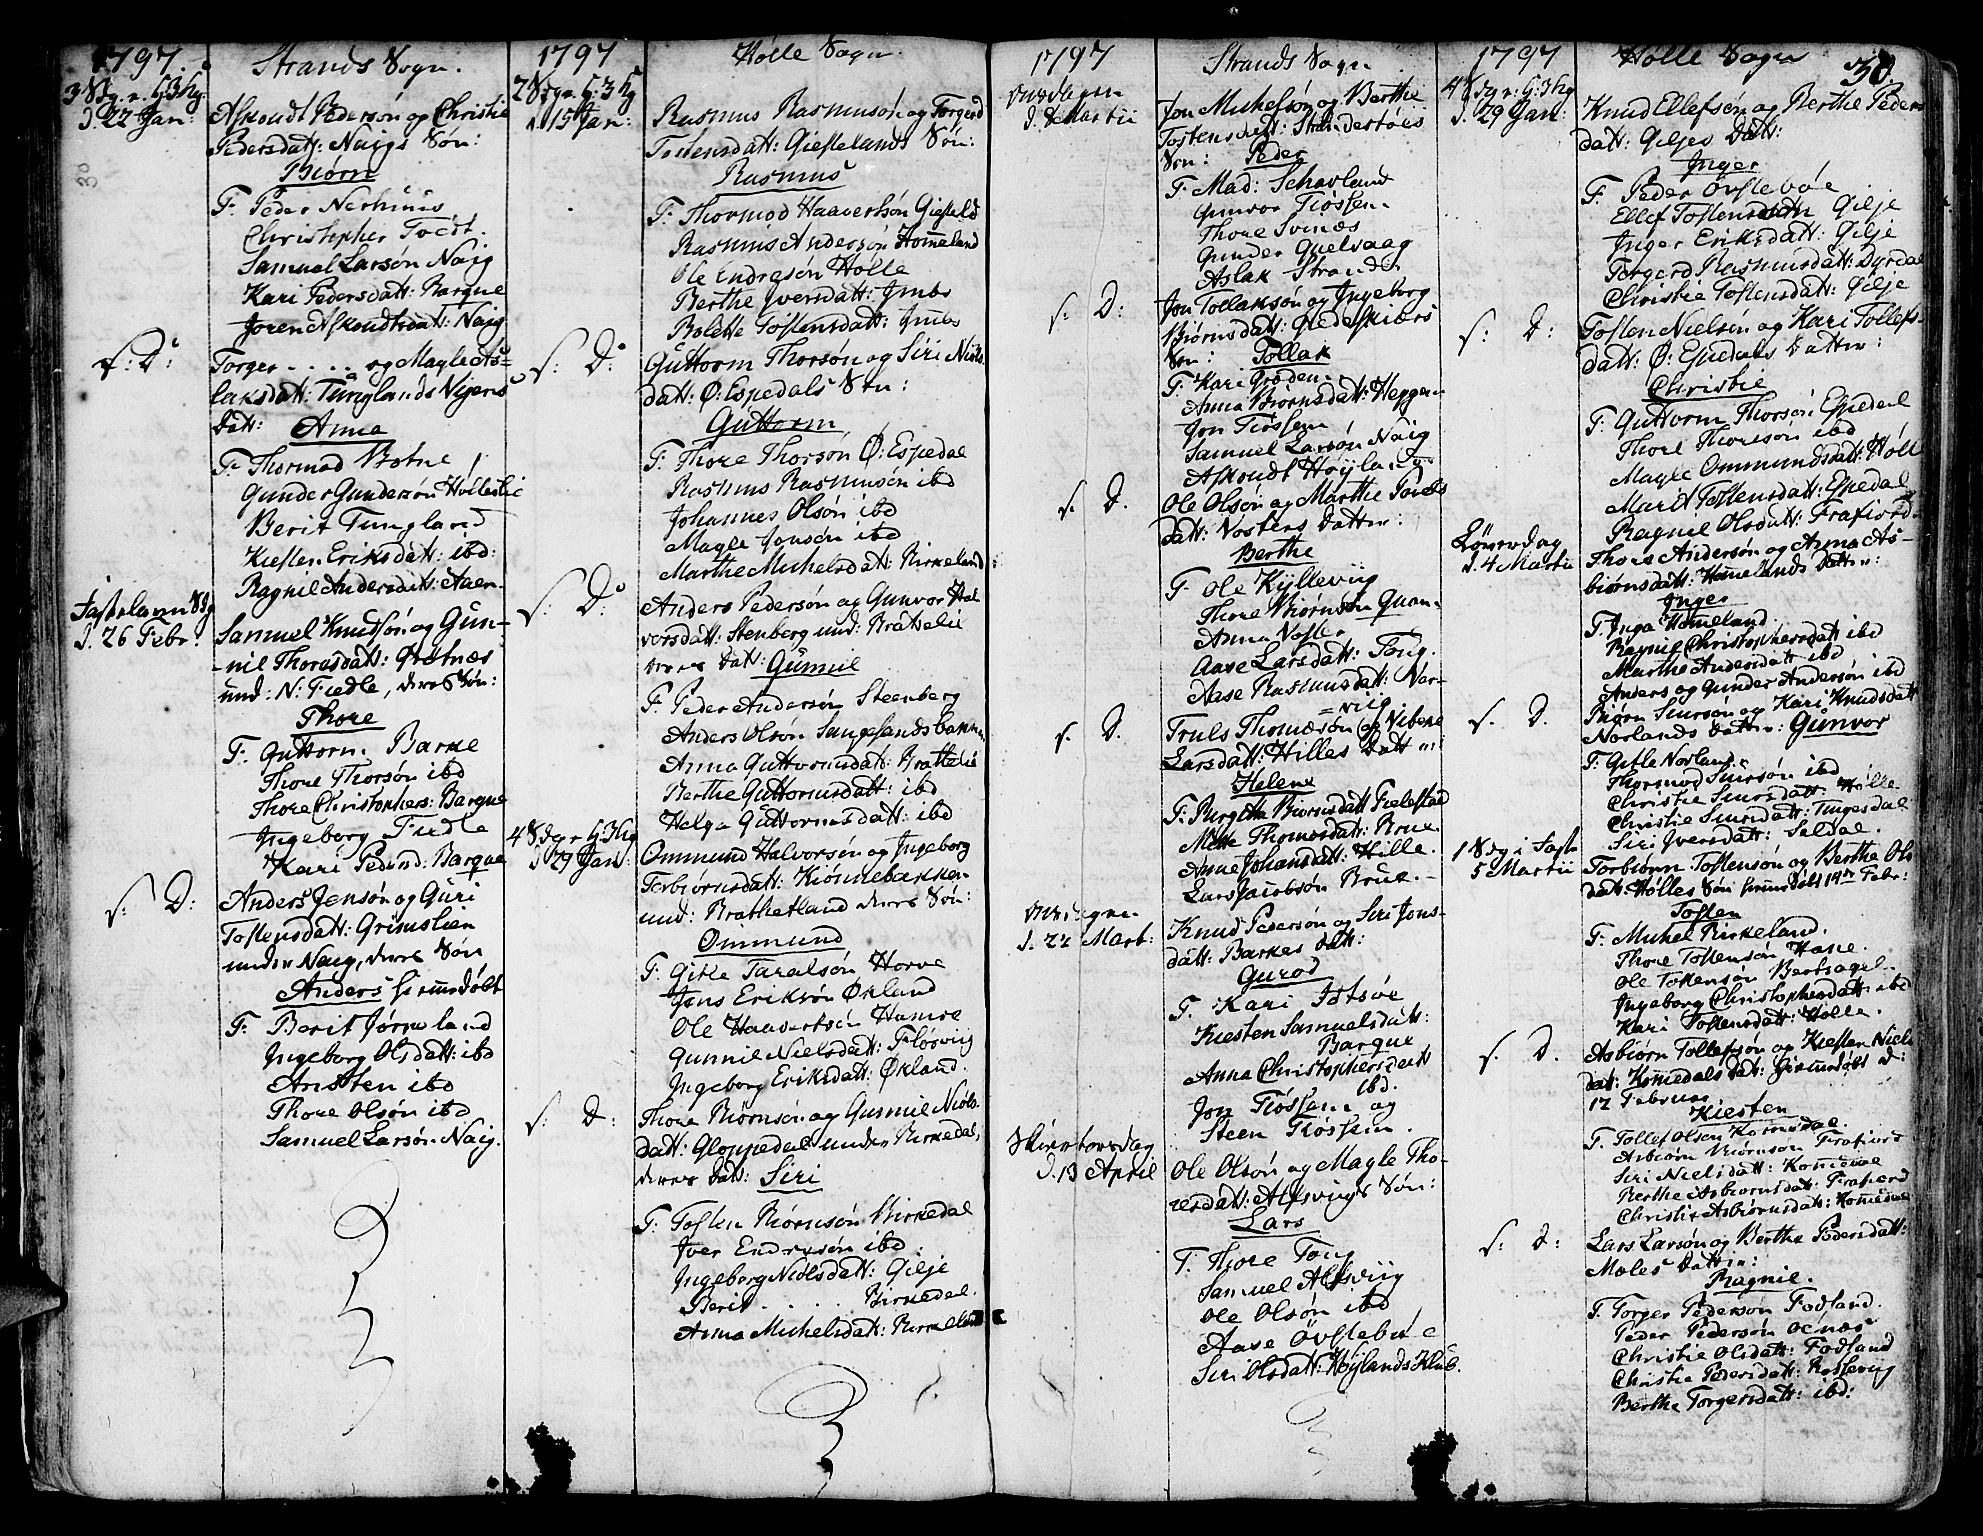 1797.
Strands Sogn.
3 Sdg. e. H: 3 Kg.
d. 22 Jan:
Askoudt Pedersón og Christie
Pedersdatt: Naigs Són:
Biórn
F. Peder Nerhuus
Christopher
Samuel Larsón Naig
Kari Pedersdatt: Barque
Joren Askoudtsdatt: Naig
s: D:
Torger .... og Magle As-
laksdatt: Tunglands
Datt: Anna
F. Thormod Botne
Gunder Gundersón
Berit Tungland
Kiesten Eriksdatt: ibd:
Ragnil Andersdatt: Aaen
Fastelavns Sdg
d. 26 Febr:
Samuel Knudsón og Gun-
nil Thoresdatt:
und: N: Fiedle, deres Són:
Thore
F. Guttorm Barke
Thore Thorsón ibd
Thore Christophers: Barque
Ingeborg Fiedle
Kari Pedersd: Barque
s: D:
Anders Jensón og Guri
Tostensdatt: Grimslien
under Naig, deres Són
Anders hiemdóbt
F. Berit Jórpeland
Ingeborg Olsdatt: ibd
Aresten ibd
Thore Olsón ibd
Samuel Larsón Naig.
1797
Hólle Sogn.
2 Sdg. e. H: 3 Kg
d. 15 Jan:
Rasmus Rasmusón og Torgerd
Tostensdatt: Giestelands Són:
Rasmus
F. Thormod Haaversón Giesteld
Rasmus Andersón Homeland
Ole Endresón Hólle
Berthe Iversdatt: Imbs
Bolette Tostensdatt: Imbs
s: D:
Guttorm Thorsón og Siri Niels-
datt: Ø: Espedals Són:
Guttorm
F. Thore Thorsón Ø: Espedal
Rasmus Rasmusón ibd
Johannes Olsón ibd
Magle Jonsón ibd
Marthe Michelsdatt: Birkeland
s: D:
Anders Pedersón og Gunvor Hal-
vorsdatt: Stenberg und: Bratelie
deres Datt: Gunnil
F. Peder Andersón Steenberg
Anders Olsón Saugesandsbakken
Anna Guttormsdatt: Brattelie
Berthe Guttormsdatt: ibd
Helga Guttormsdatt: ibd
4 Sdg. e. H: 3 Kg
d. 29 Jan:
Ommund Halvorsón og Ingeborg
Torbiórnsdatt: Kiónnebakken
und: Brathetland deres Són:
Ommund
F. Gitle Taralsón Horve
Jens Eriksón Økland
Ole Haavertsón
Gunnil Nielsdatt: Flósviig
Ingeborg Eriksdatt: Økland.
s: D:
Thore Biórnsón og Gunnil Niels-
datt: Gloppedal under Birkedal,
deres Datt: Siri
F. Tosten Biórnsón Birkedal
Iver Endresón ibd
Ingeborg Nielsdatt: Gilje
Berit .... Birkedal.
Anna Michelsdatt: Birkeland
1797
Strands Sogn
Onsdagen
d. 8 Martii
Jon Michelsón og Berthe
Tostensdatt:
Són: Peder
F. Mad: Schavland
Gunvor Fióssen
Thore Svinæs
Gunder Quelvaag
Aslak Strand
s. D:
Jon Tollaksón og Ingeborg
Biórnsdatt:
Són: Tollak
F. Kari Gróden
Anna Biórnsdatt: Heggen
Jon Fióssen
Samuel Larsón Naig
Askoudt Hóyland
s. D.
Ole Olsón og Marthe
datt: Nostens Datter:
Berthe
F. Ole Kylleviig
Thore Biórnsón
Anna
Aase Larsdatt: Toug.
Aase Rasmusdatt: Nor-
=viig
s. D.
Truls Thomæsón og Vibeke
Larsdatt: Hilles Datter:
Helene
F. Birgitha Biornsdatt
Mette Thomesdatt: Brue.
Anne Johansdatt: Hille.
Lars Jacobsón Brue.
d. 22 Mart:
Knud Pedersón og Siri Jons-
datt: Barkes Datt:
Guroe
F. Kari Idsóe
Kiesten Samuelsdatt:
Barque
Anna Christophersdatt
ibd.
Jon Fióssen og
Steen Fióssen.
Skiertorsdag
d. 13 April
Ole Olsón og Magle Tho-
resdatt: Alsviigs Són:
Lars
F. Thore Toug
Samuel Alsviig
Ole Olsón ibd
Aase Óvstebóe
Siri Olsdatt: Hóylands
1797
Hólle Sogn
30.
4 Sdg. e. H: 3 Kg
d. 29 Jan:
Knud Ellefsón og Berthe Peders
datt: Giljes Datt:
Inger
F. Peder Óvstebóe
Ellef Tostensón Gilje
Inger Eriksdatt: Gilje
Torgerd Rasmusdatt: Dyrdal
Christie Tostensdatt: Gilje
s: D:
Tosten Nielsón og Kari Tollefs-
datt: Ø: Espedals Datter:
Christie
F. Guttorm Thorsón Espedal
Thore Thoresón ibd
Magle Ommundsdatt: Hóll
Marit Tostensdatt: Espedal
Ragnil Olsdatt: Frafiord
Lóverdag
d. 4 Martii
Thore Andersón og Anna As-
biórnsdatt: Homelands Datter:
Inger
F. Inga Homeland.
Ragnil Christophersdatt ibd
Marthe Andersdatt ibd
Anders og Gunder Andersón ibd
s. D.
Biórn Siursón og Kari Knudsdatt
Norlands Datter: Gunvor
F. Gitle Norland
Thormod Siursón ibd
Christie Siursdatt: Hille
Christie Siursdatt: Tungesdal
Siri Iversdatt: Seldal.
1 Sdg i Faste
5 Martii
Torbiorn Tostensón og Berthe Ols
datt: Hólles Són hiemdóbt 19de Febr:
Tosten
F. Michel Birkeland.
Thore Tostensón
Ole Tostensón
Ingeborg Christophersdatt ibd
Kari Tostensdatt: Hólle.
s. D.
Asbiórn Tollefsón og Kiesten Niels
datt: Komedals Datt: hiemdóbt d:
12 Februar
Kiesten
F. Tollef Olsen Komedal.
Asbiórn Biórnsón Frafiord
Siri Nielsdatt: Komedal
Berthe Asbiornsdatt: Frafiord
Christie Asbiórnsdatt: Komedal
s. D:
Lars Larsón og Berthe Pedersdatt:
Moles Datter:
Ragnil.
F. Torger Pedersón Fodland.
Peder Pedersón
Christie Olsdatt: Fodland
Christie Pedersdatt: Rosseviig
Berthe Torgersdatt: ibd: